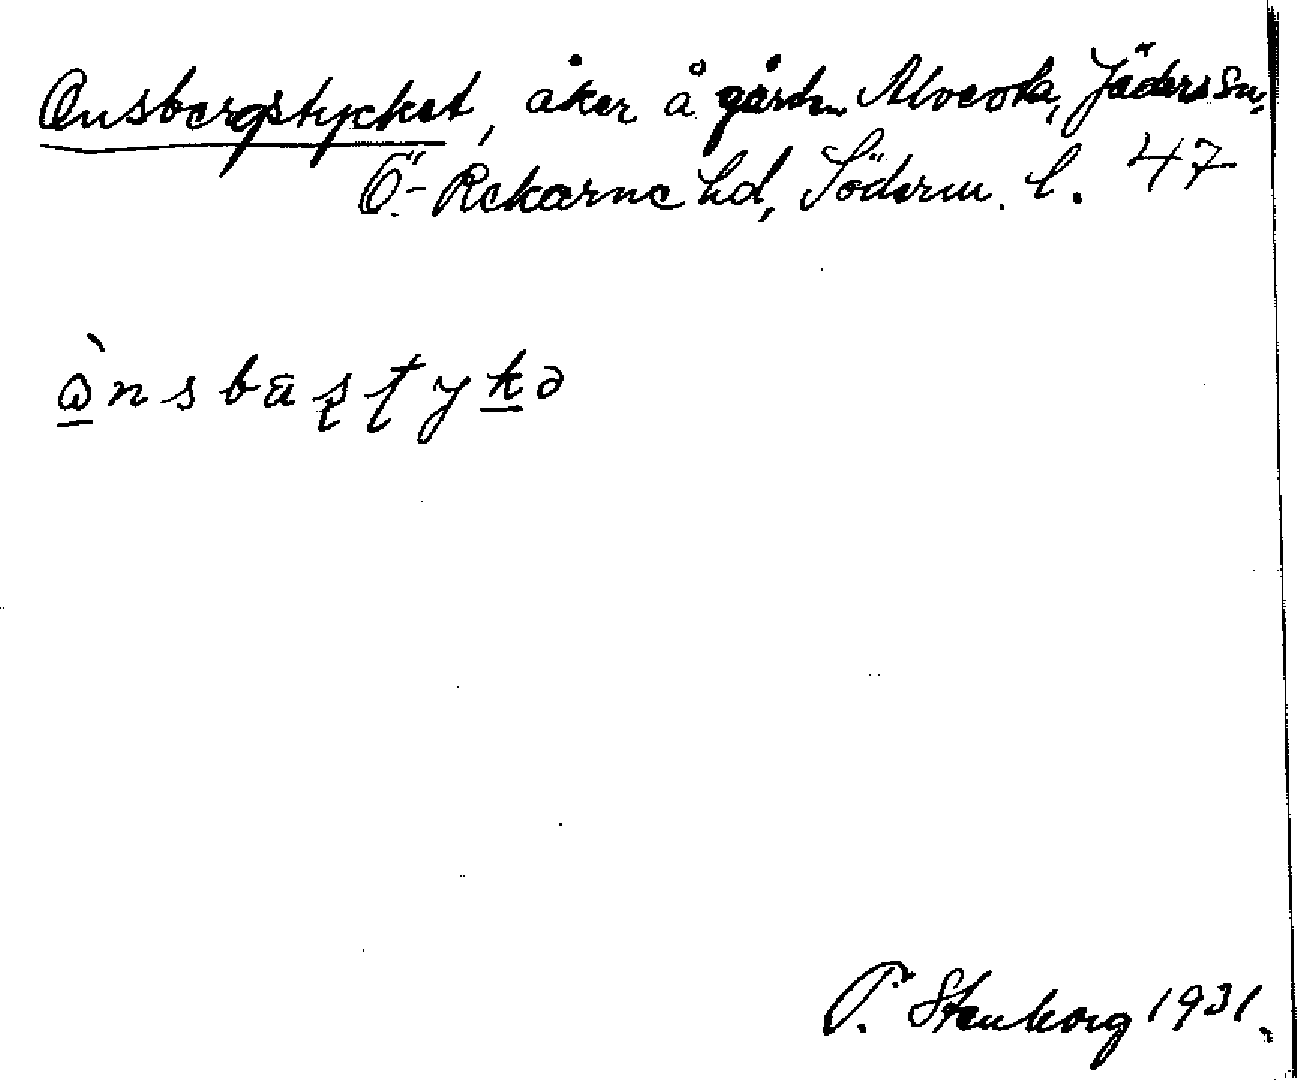 Onsbergstycket, åker å gården Alvesta, Jäders sn,
Ö.-Rekarne hd, Söderm. l. 47
ὼn s b a ʂ ʈ y k ə
P. Stenborg 1931.